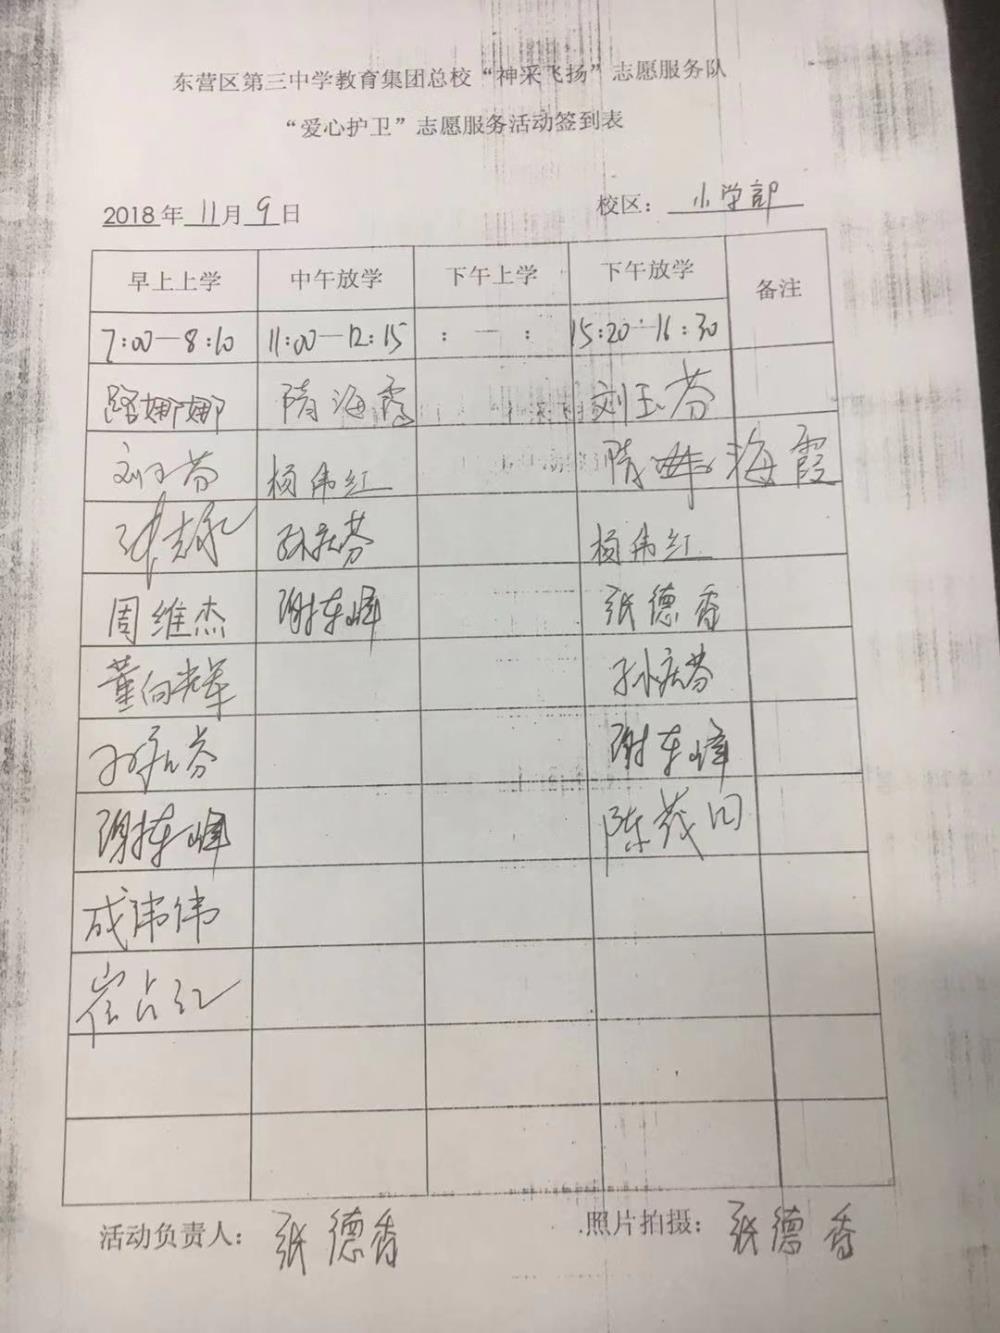 东营区第三中学教育集团总校“神采飞扬”志愿服务队
“爱心护卫”志愿服务活动签到表
2018年 11月 9日 校区： 小学部
早上上学 中午放学 下午上学 下午放学 备注
7:00—8:10 11:00—12:15 : — : 15:20—16:30
路娜娜 隋海霞 刘玉芬
刘玉芬 杨伟红 隋 海霞
孙庆芬 杨伟红
周维杰 谢东峰 张德香
董向辉 孙庆芬
孙庆芬 谢东峰
谢东峰 陈茂田
成伟伟
崔占红
活动负责人： 张德香 照片拍摄： 张德香